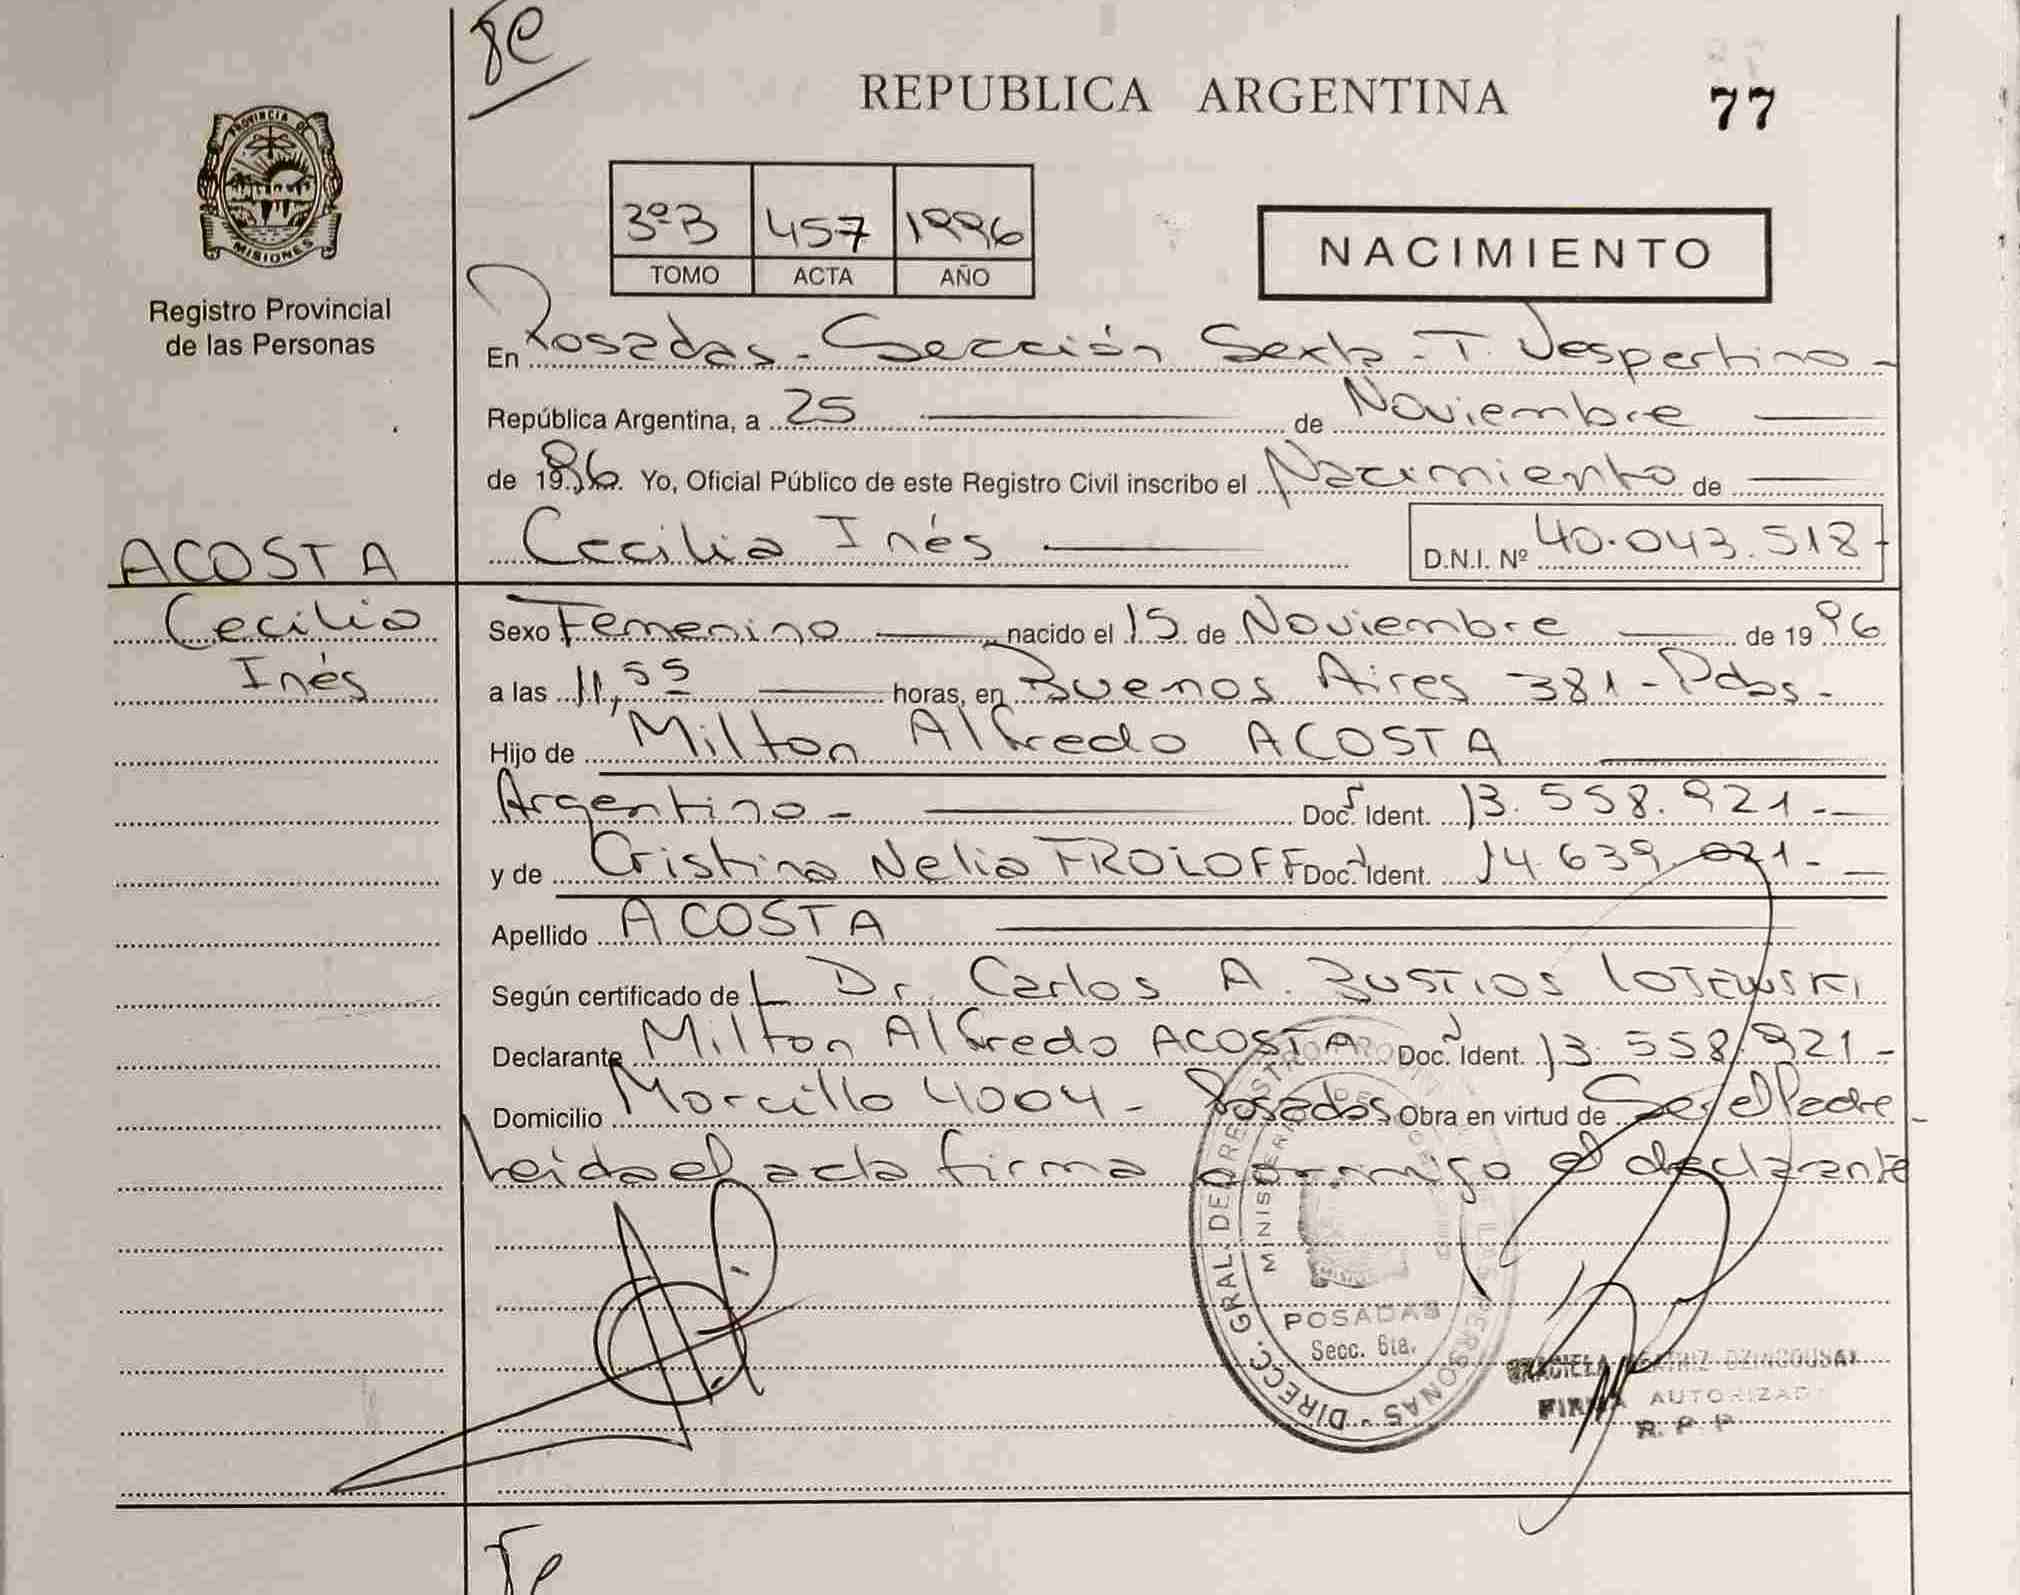 REPUBLICA ARGENTINA
77
PROVINCIA DE
MISIONES
Registro Provincial
de las Personas
3ºB 457 1996
TOMO ACTA AÑO
NACIMIENTO
En Posadas - Sección Sexta - T. Vespertino -
República Argentina, a 25 de Noviembre
de 1996. Yo, Oficial Público de este Registro Civil inscribo el Nacimiento de
Cecilia Inés D.N.I. Nº 40.043.518-
ACOSTA
Cecilia
Inés
Sexo Femenino nacido el 15 de Noviembre de 1996
a las 11,55 horas, en Buenos Aires 381 - Pdas -
Hijo de Milton Alfredo ACOSTA
Argentino - Doc. Ident. 13.558.921 -
y de Cristina Nelia FROLOFF Doc. Ident. 14.639.021 -
Apellido ACOSTA
Según certificado de L Dr. Carlos A. BUSTIOS
Declarante Milton Alfredo ACOSTA Doc. Ident. 13.558.921 -
Domicilio Morcillo 4004 - Posadas Obra en virtud de Ser el Padre -
Leida el acta firma conmigo el declarante
POSADAS
Secc. 6ta.
DIRECC. GRAL. DE REGISTRO
GRACIELA BEATRIZ
FIRMA AUTORIZADA
R. P. P.